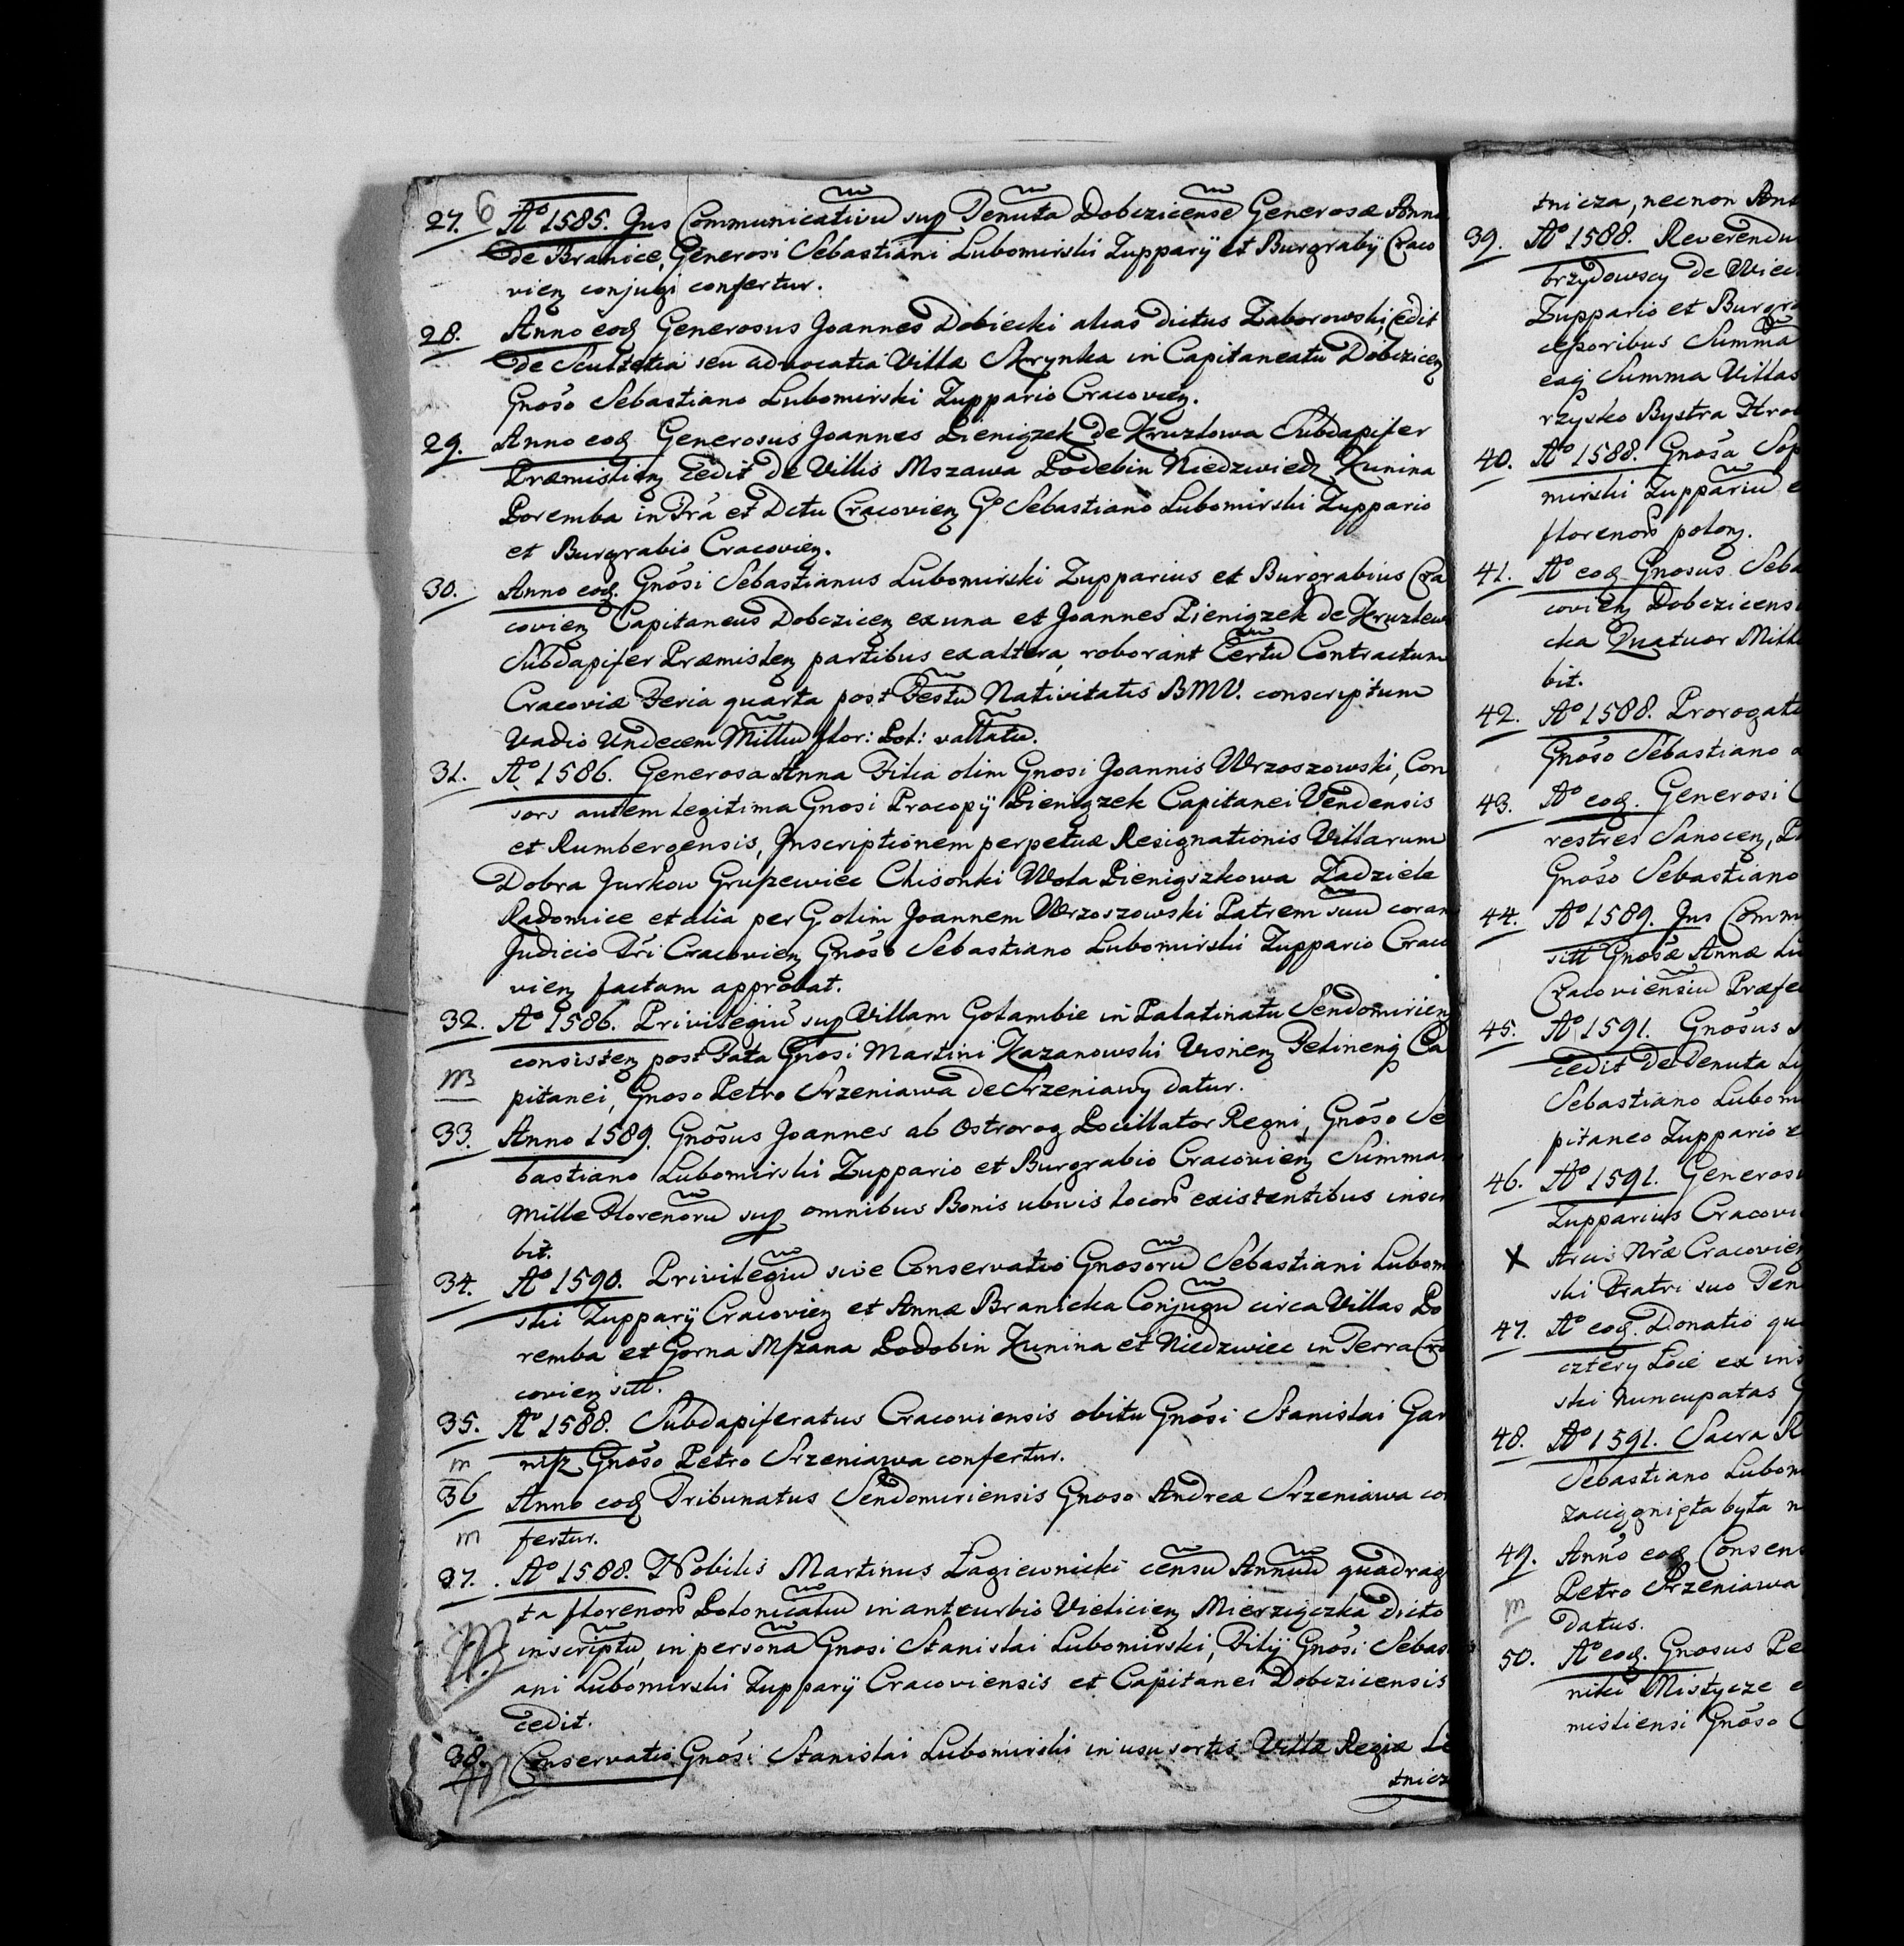 6
27. Aº 1585. Jus Communicativu sup Tenuta Dobczicense Generosæ Anna
de Branice, Generosi Sebastiani Lubomirski Zupparÿ et Burgrabÿ Craco
vien conjugi confertur.
28. Anno eod Generosus Joannes Dobiecki alias dictus Zaborowski, cedit
de Scultetia seu advocatia Villæ Skrynka in Capitaneatu Dobczicen
Gnoso Sebastiano Lubomirski Zuppario Cracovien.
29. Anno eod Generosus Joannes Pieniązek de Kruzlowa Subdapifer
Præmislien cedit de Villis Mszawa Podebin Niedzwiedz Kunina
Poremba in Tra et Dctu Cracovien Gº Sebastiano Lubomirski Zuppario
et Burgrabio Cracovien.
30. Anno eod. Gnosi Sebastianus Lubomirski Zupparius et Burgrabius Cra
covien Capitaneus Dobczicen ex una et Joannes Pieniązek de Kruzlew
Subdapifer Præmislen partibus ex altera, roborant Certu Contractum
Cracoviæ Feria quarta post Festu Nativitatis BMV. conscriptum
Vadio Undecem Milliu flor: Pol: vallatu.
31. Aº 1586. Generosa Anna Filia olim Gnosi Joannis Wrzoszowski, Con
sors autem legitima Gnosi Procopÿ Pieniązek Capitanei Vendensis
et Rumbergensis, Inscriptionem perpetuæ Resignationis Villarum
Dobra Jurkow Gruszewiec Chisonki Wola Pienigszkowa Zadziele
Radomice et alia per G. olim Joannem Wrzoszowski Patrem suu coram
Judicio Tri Cracovien Gnoso Sebastiano Lubomirski Zuppario Craco
vien factam approbat.
32. Aº 1586. Privilegiu sup Villam Golambie in Palatinatu Sendomirien
m consisten post Fata Gnosi Martini Kazanowski Visnen Felinen Ca
pitanei, Gnoso Petro Srzeniawa de Srzeniawy datur.
33. Anno 1589. Gnosus Joannes ab Ostrorog Pocillator Regni, Gnoso Se
bastiano Lubomirski Zuppario et Burgrabio Cracovien Summam
Mille Florenoru sup omnibus Bonis ubivis locor existentibus inscri
bit.
34. Aº 1590. Privilegiu sive Conservatio Gnosoru Sebastiani Lubom
ski Zupparÿ Cracovien et Annæ Branicka Conjugu circa Villas Po
remba et Gorna Mszana Podobin Kunina et Niedzwiec in Terra Cra
covien sitt.
35. Aº 1588. Subdapiferatus Cracoviensis obitu Gnosi Stanislai Gar
m nisz Gnoso Petro Srzeniawa confertur.
36 Anno eod Tribunatus Sendomiriensis Gnoso Andreæ Srzeniawa con
m fertur.
37. Aº 1588. Nobilis Martinus Łagiewnicki censu Annuu quadrag
ta florenor Polonicaliu in anteurbio Vielicien Mierzigczka dicto
m inscriptu, in persona Gnosi Stanislai Lubomirski, Filÿ Gnosi Sebas
ani Lubomirski Zupparÿ Cracoviensis et Capitanei Dobczicensis
cedit.
38. Conservatio Gnosi Stanislai Lubomirski in usu sortis Villæ Regiæ Le
tnicz
tnicza, necnon Ant
39. Aº 1588. Reverendu
brzydowscy de Wiec
Zuppario et Burgra
cessoribus Summa
eaq Summa Villas
rzysko Bystra Kro
40. Aº 1588. Gnosa Sop
mirski Zuppariu e
florenor polon.
41. Aº eod Gnosus Seba
covien Dobczicensi
cka Quatuor Mille
bit.
42. Aº 1588. Prorogati
Gnoso Sebastiano
43. Aº eod. Generosi
restres Sanocen, P
Gnoso Sebastiano
44. Aº 1589. Jus Comm
sitt Gnosæ Annæ Lu
Cracoviensiu Præfe
45. Aº 1591. Gnosus
cedit de Tenuta
Sebastiano Lubom
pitaneo Zuppario e
46. Aº 1591. Generosu
Zupparius Cracovi
X Arcis Nræ Cracovien
ski Fratri suo Ten
47. Aº eod. Donatio qu
cztery Łocie ex ins
ski nuncupatas
48. Aº 1591. Sacra R
Sebastiano Lubom
zaciągnięta była n
49. Anno eod Consens
Petro Srzeniawa
m datus.
50. Aº eod. Gnosus Pe
niki Mistycze e
misliensi Gnoso